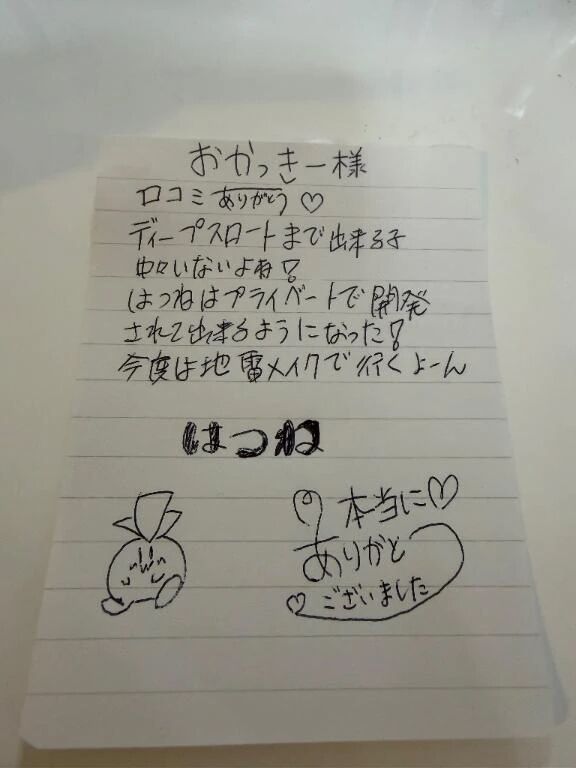 おかっきー様
口コミありがとう♡
ディープスロートまで出来る子
中々いないよね!
はつねはプライベートで開発
されて出来るようになった!
今度は地雷メイクで行くよーん
はつね
本当に♡
ありがと
♡ございました